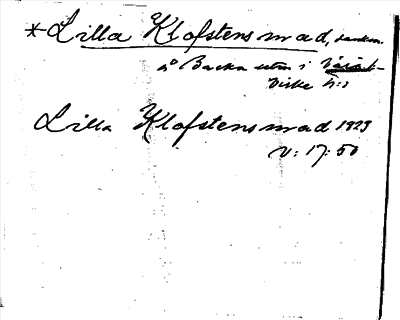 *Lilla Klofstensmad, sankm.
å Backa utm i
Viske h:d
Lilla Klofstensmad 1923
V: 17:50